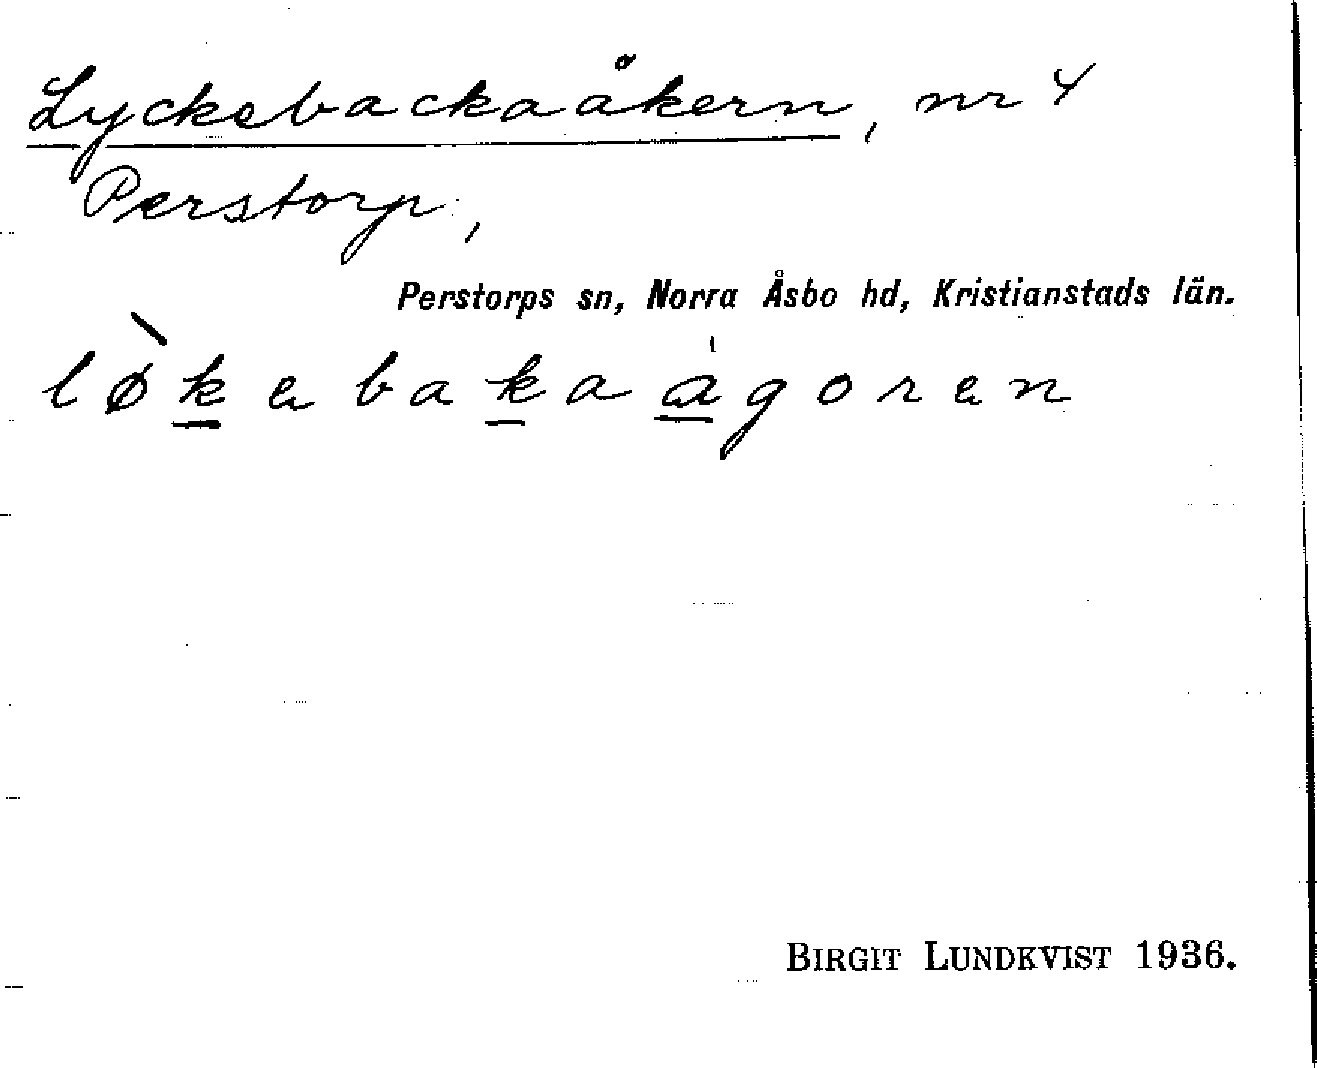 Lyckebackaåkern, nr 4
Perstorp,
Perstorps sn, Norra Åsbo hd, Kristianstads län.
lø̀k̲ebak̲aa̲goren
BIRGIT LUNDKVIST 1936.